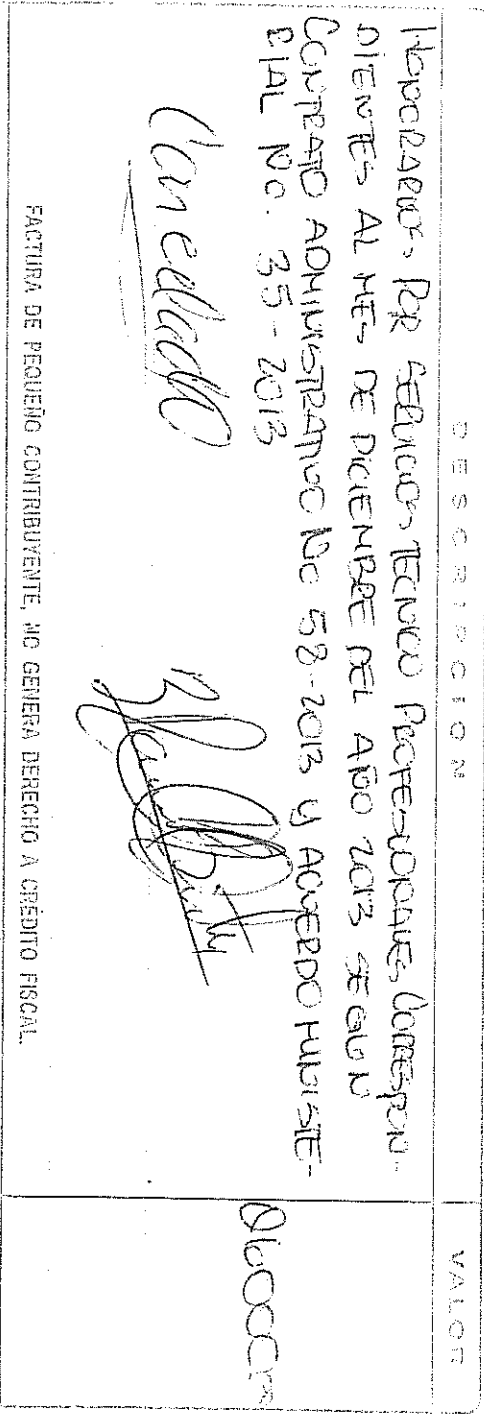 DESCRIPCION
VALOR
HONORARIOS POR SERVICIOS TECNICO PROFESIONALES CORRESPON-
DIENTES AL MES DE DICIEMBRE DEL AÑO 2013 SEGUN
CONTRATO ADMINISTRATIVO No 58-2013 Y ACUERDO MINISTE-
RIAL No. 35-2013
Cancelado
FACTURA DE PEQUEÑO CONTRIBUYENTE, NO GENERA DERECHO A CRÉDITO FISCAL.